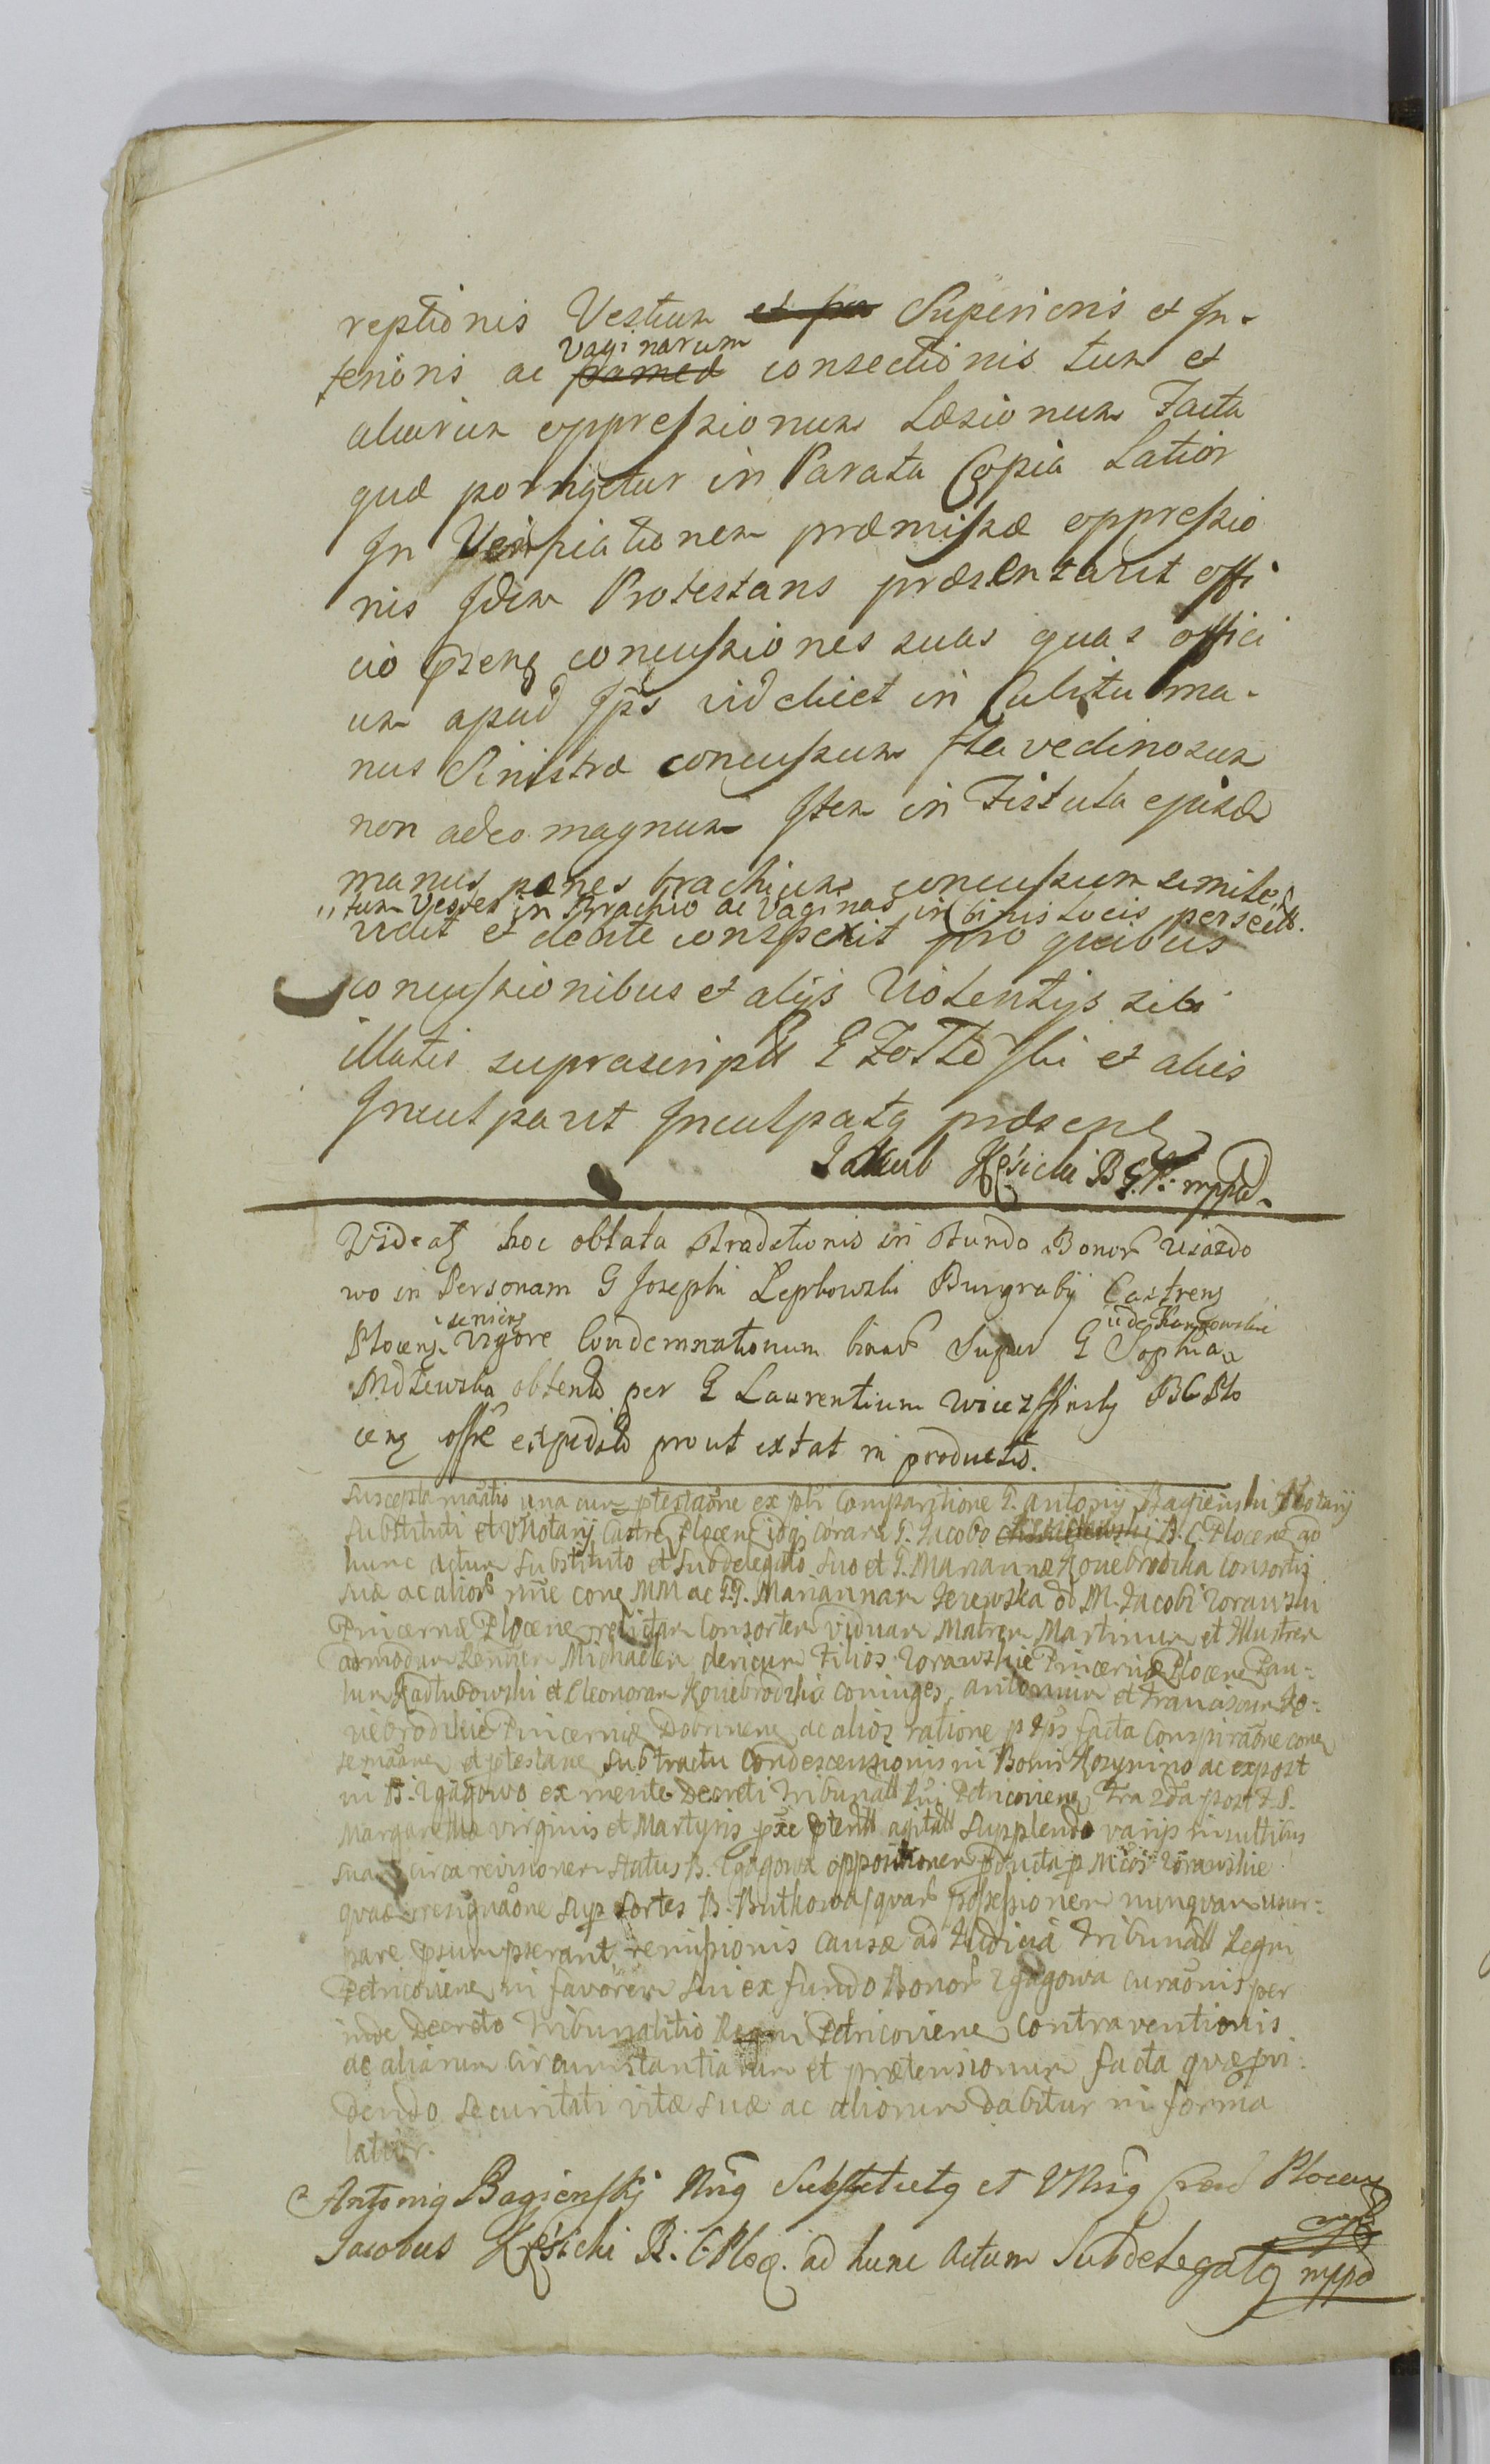 reptionis Vestium et per Superioris et In-
terioris ac vaginarum consectionis tum et
aliarum oppressionum Læsionum Facta
quæ porrigetur in Parata Copia Latior
In Verificationem præmissæ oppressio
nis Idem Protestans præsentavit offi
cio præsenti concussiones suas quas offici
um apud Ips videlicet in Cubitu ma-
nus Sinistræ concussum flavedinosum
non adeo magnum Item in Fistula ejusd
manus penes brachium concussum simile,
"tum Vestes in Brachio ac Vaginas in binis Locis persectas.
vidit et debite conspexit pro quibus
concussionibus et alijs Violentijs sibi
illatis suprascriptt G et alios
Inculpavit Inculpatq præsens
Jakub Kęsicki B G P mppd
Videatq hoc oblata Traditionis in Fundo Bonor Ujazdo
wo in Personam G Josephi Lepkowski Burgrabij Castrens
Plocens. seniens Vigore Condemnationum binar Super G Sophia
Mdzewska obtent per G Laurentium BCPlo
cens offe expedit prout extat in productis.
Suscepta una cum ptestaõne ex psti Comparitione G. Antonij Bagienski Notarij
Substituti et VNotarij Castr Plocens idqe coram G. Jacobo B. C. Plocens ad
hunc actum Substituto et Subdelegato suo et G. Mariannæ Koniebrodzka Consortis
suæ ac alior nne conq MM ac GG. Mariannam Jezewska M. Jacobi Zorawski
Pincernæ Plocens relictam Consortem viduam Matrem Martinum et Illustrem
admodum Rendum Michaelem clericum Filios Zorawskie Pincernæ Plocens Pau-
lum Kadlubowski et Eleonoram Koniebrodzkie coniuges, Antonium et Franciscum Ko-
niebrodzkie Pincernia Dobrinens ac alios ratione p Ips facta Conspiraõne conq
et ptestans Sub tractu Condescensionis in Bonis Kosynino ac ex post
in B. Zgagowo ex mente Decreti Tribunall Rni Petricoviens Fra 2da post F. S.
Margaretha Virginis et Martyris agitatt Supplendo varijs insultibus
suam circa revisionem status B. Zgagowa oppositionem p Zorawskie
quæ resignaõne Sup Sortes B. Butkowa quar possessionem nunquam usur-
pare psumpserant, remissionis causæ ad Judicia Tribunall Regni
Petricoviens in favorem sui ex fundo Bonor Zgagowa per
inde Decreto Tribunalitio Regni Petricoviens Contraventionis
ac aliarum circumstantiarum et prætensionum facta quæ pvi-
dendo securitati vitæ suæ ac aliorum dabitur in forma
latior.
Antoniq Bagienskj Nriq Substitutq et VNriq Plocens mppd
Jacobus Kęsicki B. C Ploc. ad hunc Actum Subdelegatq mppd